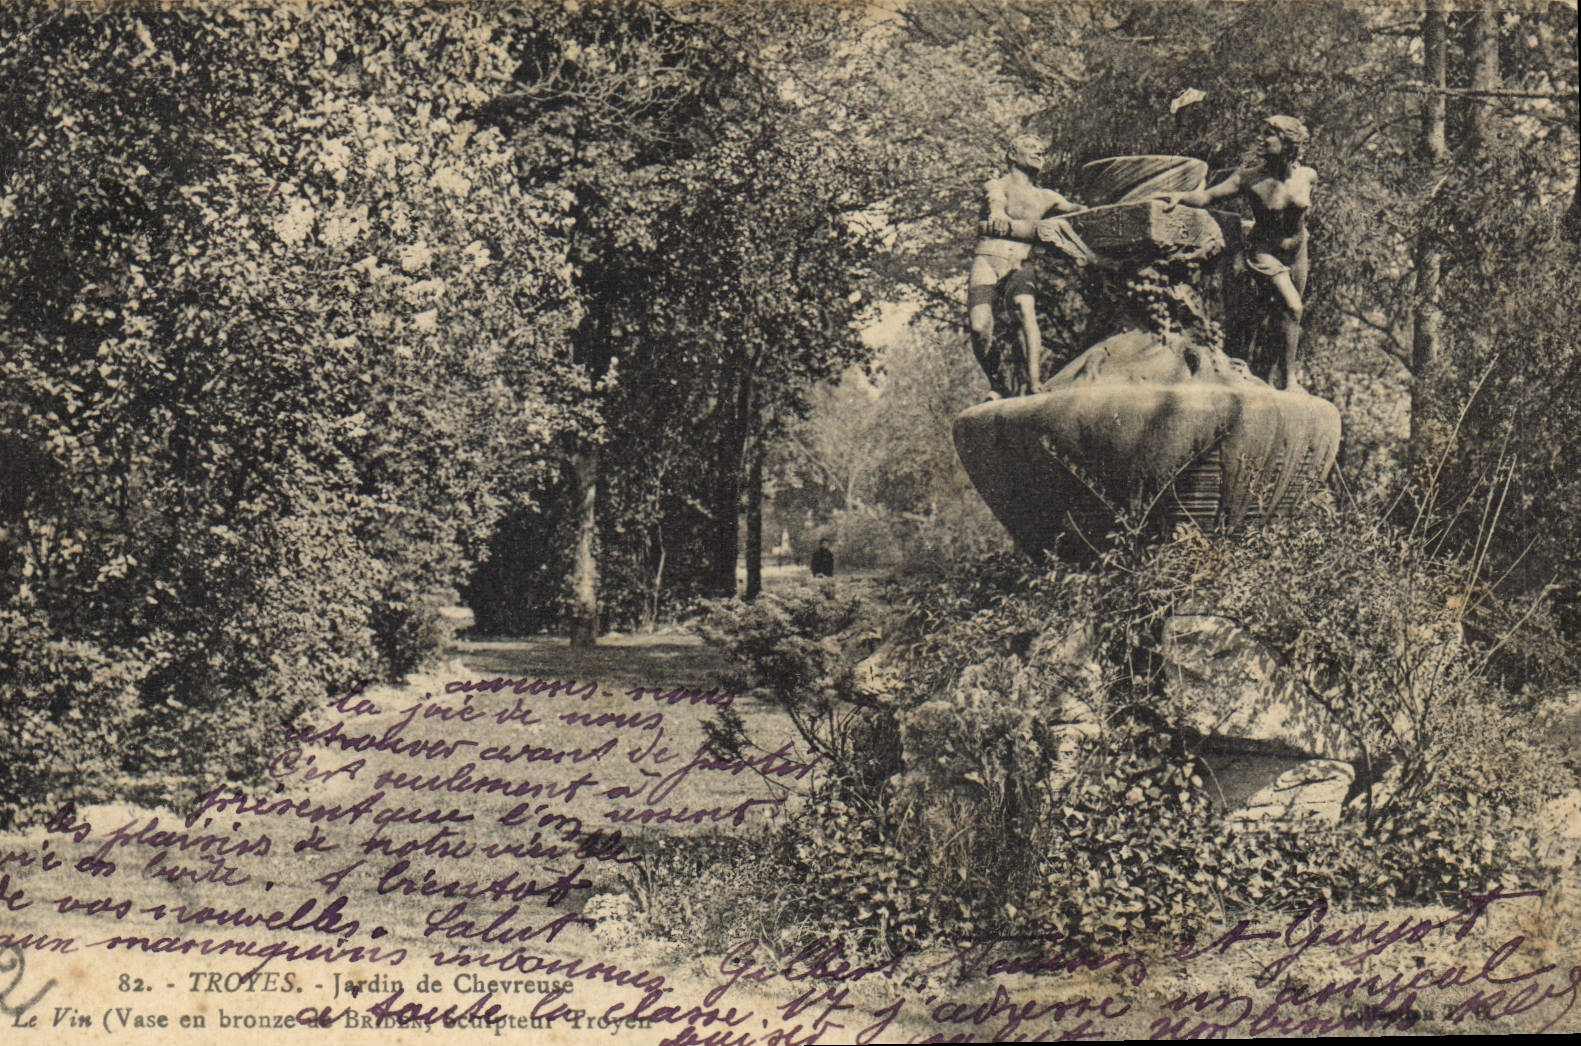 aurons-nous
la joie de nous
retrouver avant de partir
C'est seulement à
présent que l'on ressent
les plaisirs de notre vieille
vie en boîte. A bientôt
de vos nouvelles. Salut
aux mannequins
à toute la classe 17 j'adresse un amical
Gilbert, et Guyot
82. - TROYES. - Jardin de Chevreuse
Le Vin (Vase en bronze de BRIDEN, Sculpteur Troyen
Collection